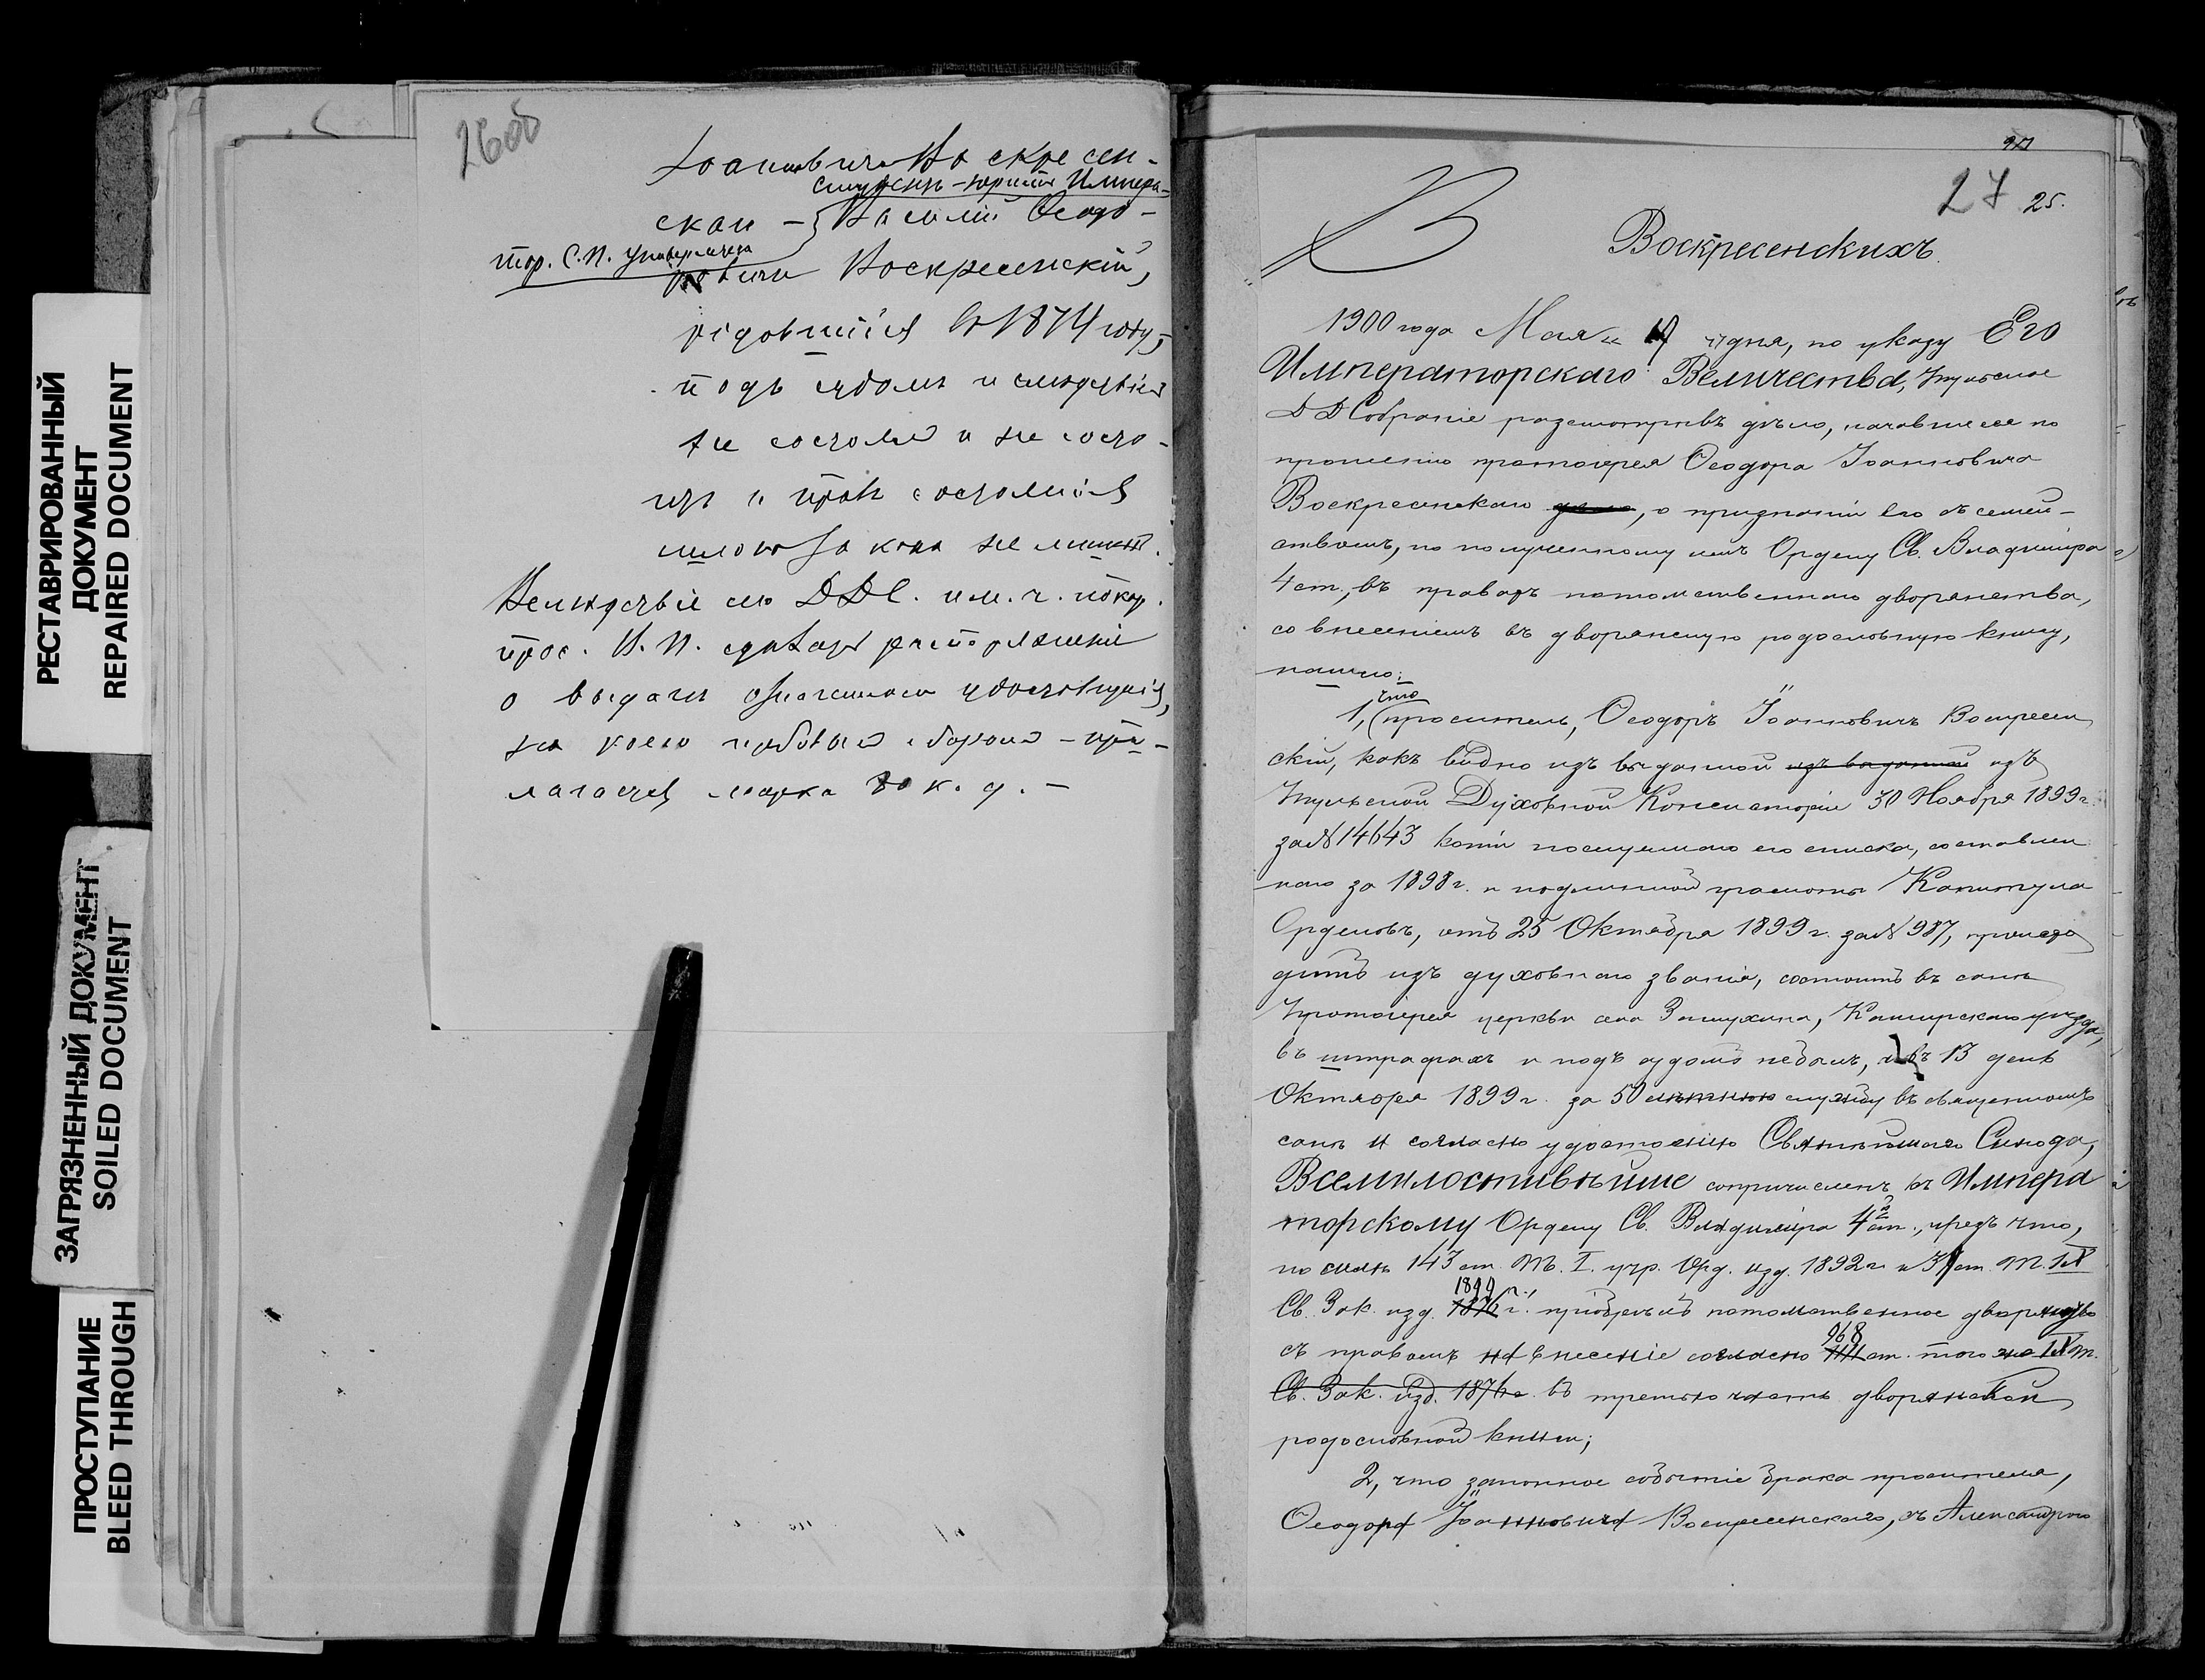 РЕСТАВРИРОВАННЫЙ
ДОКУМЕНТ
REPAIRED DOCUMENT
ЗАГРЯЗНЕННЫЙ ДОКУМЕНТ
SOILED DOCUMENT
ПРОСТУПАНИЕ
BLEED THROUGH
260б
Іоанновича Воскресен-
студентъ-юристъ Импера-
скаго - Василій Ѳеодо-
тор. С.П. Университета
ровичъ Воскресенскій,
родовшійся въ 1874 году,
подъ судомъ и слѣдствіемъ
не состоялъ и не состо-
итъ и подъ
не
Вслѣдствіе сего ДДС. им. ч. покор.
прос. В. П. сдѣлать распоряженіе
о выдачѣ означеннаго удостовѣренія,
на коего гербовый сборъ - при-
лагается марка 80 к. д. -
27 25.
Воскресенскихъ.
1900 года Мая " 19 " дня, по указу Его
Императорскаго Величества, Тульское
ДД Собраніе разсмотрѣвъ дѣло, начавшееся по
прошенію протоіерея Ѳеодора Іоанновича
Воскресенскаго, о признаніи его съ семей-
ствомъ, по полученному имъ Ордену Св. Владиміра
4 ст., въ правахъ потомственнаго дворянства,
со внесеніемъ въ дворянскую родословную книгу,
нашло:
1, что проситель, Ѳеодоръ Іоанновичъ Воскресен
скій, какъ видно изъ выданной изъ выданной изъ
Тульской Духовной Консисторіи 30 Ноября 1899 г.
за № 14643 копіи послужнаго его списка, составлен
наго за 1898 г. и подлинной грамоты Капитула
Орденовъ, отъ 25 Октября 1899 г. за № 987, происхо
дитъ изъ духовнаго званія, состоитъ въ санѣ
Протоіерея церкви села Каширскаго уѣзда,
въ штрафахъ и подъ судомъ не былъ, и въ 13 день
Октября 1899 г. за 50 лѣтнюю службу въ священномъ
санѣ и согласно удостоенію Святѣйшаго Синода,
Всемилостивѣйше сопричисленъ къ Импера
торскому Ордену Св. Владиміра 4 ст., чрезъ что,
по силѣ 143 ст. Т. I. учр. Орд. изд. 1892 г. и ст. Т. IX
1899 г.,
Св. Зак. изд. 1876 г. пріобрелъ потомственное дворянство
968
съ правомъ на внесеніе согласно ст. того же IX т.
Св. Зак. изд. 1876 г. въ третью часть дворянской
родословной книги;
2, что законное событіе брака просителя,
Ѳеодора Іоанновича Воскресенскаго, съ Александрою